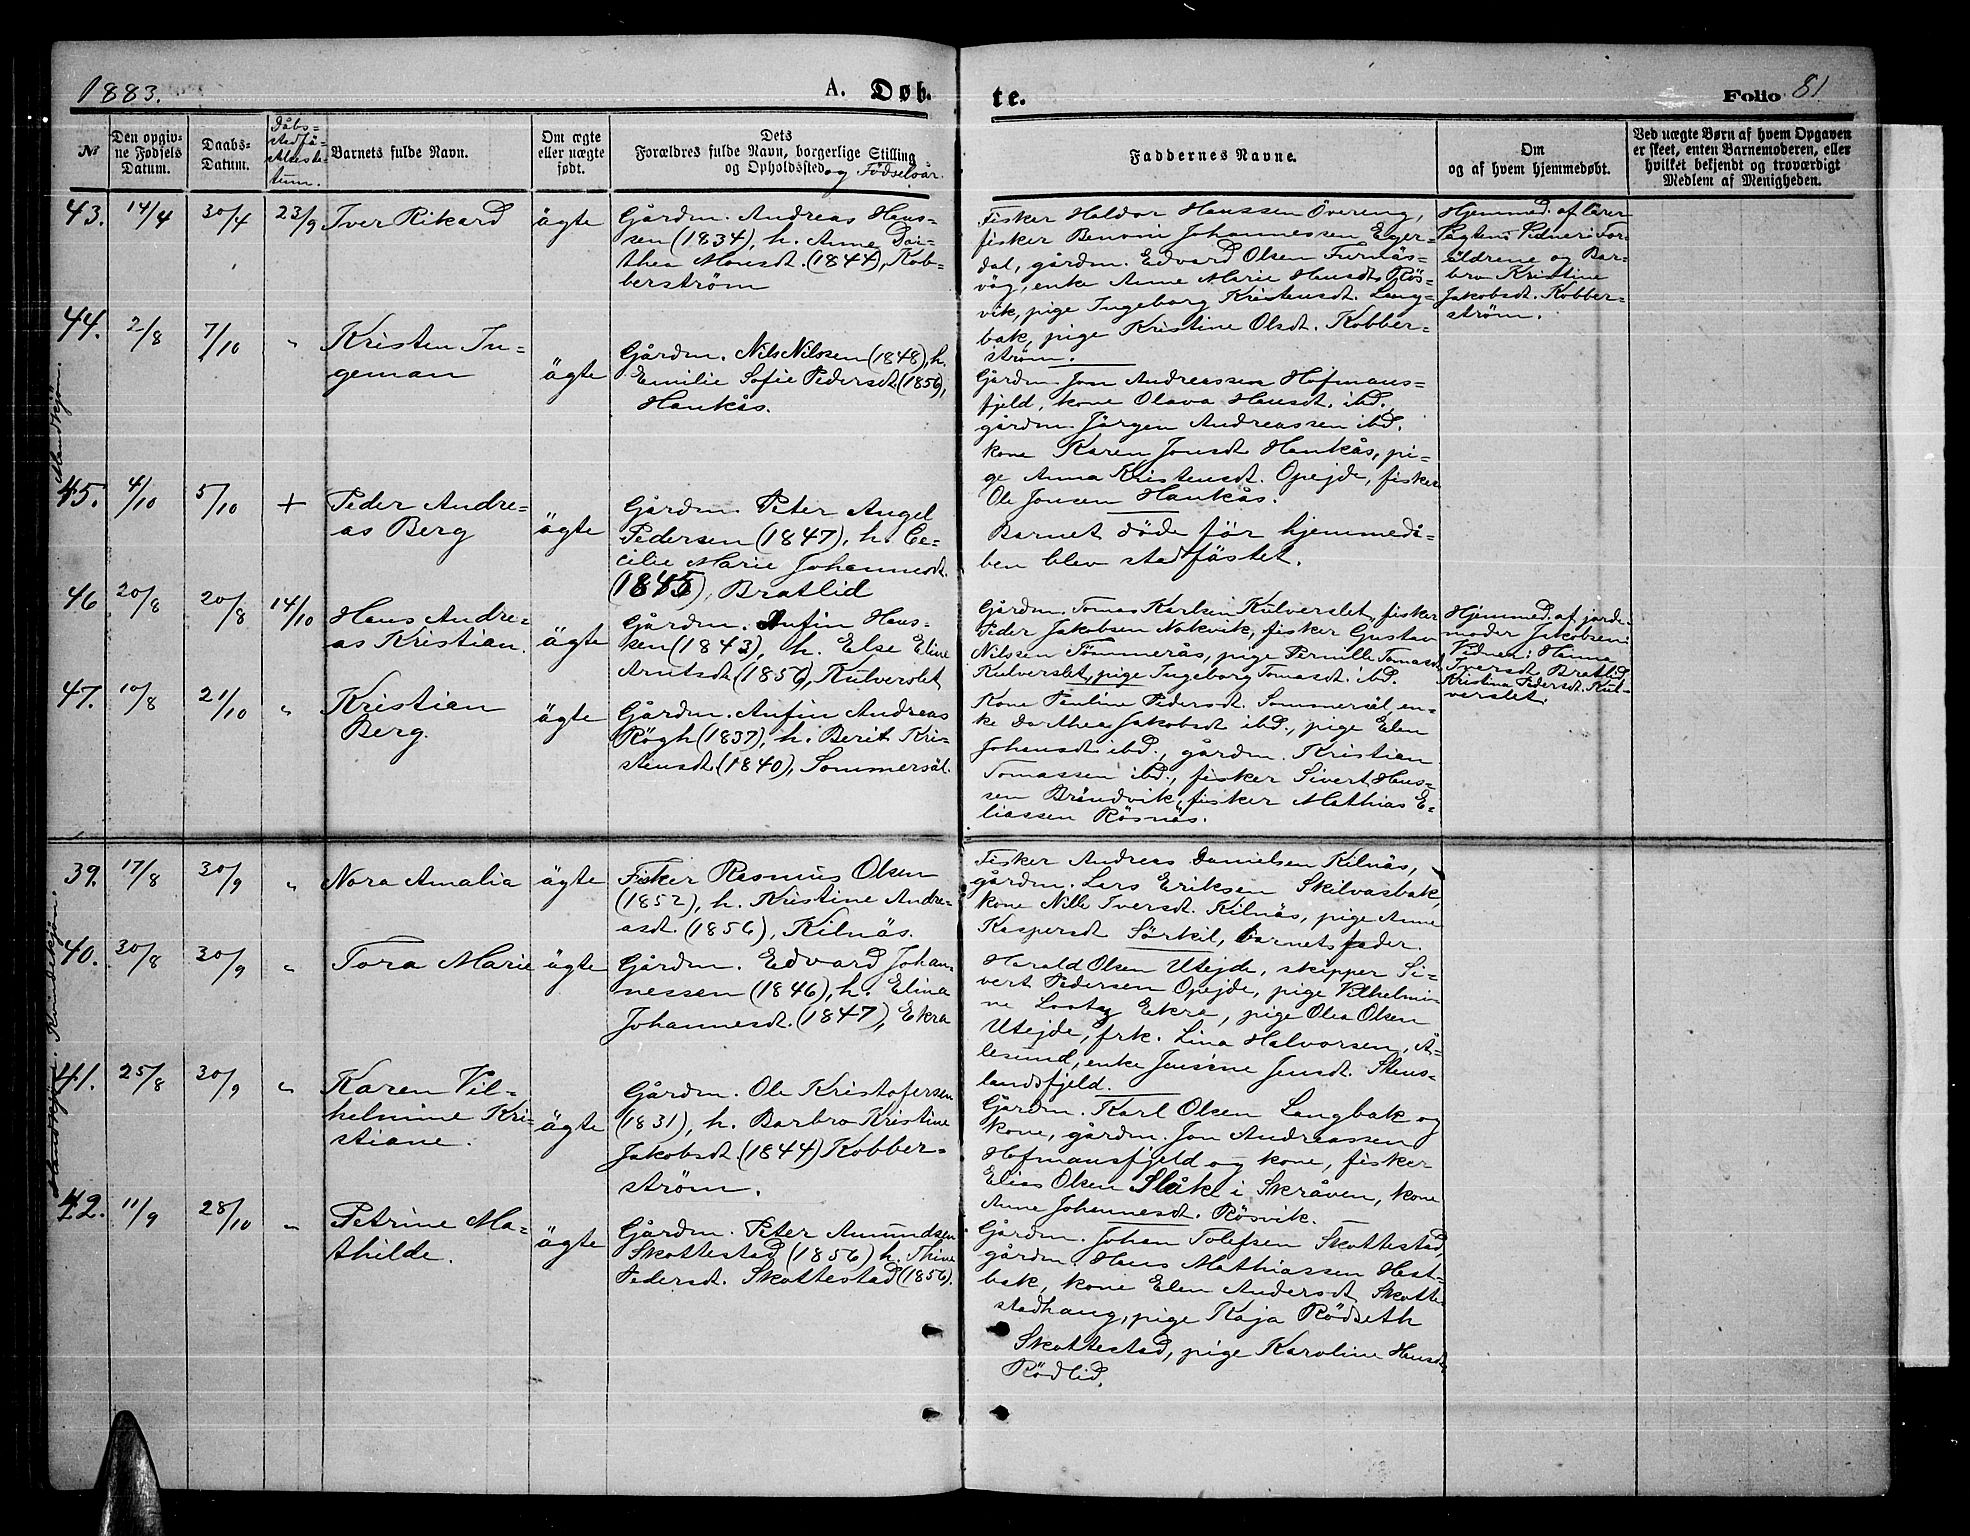 1883.
A. Døb.
te.
Folio 81
№
Den opgiv-
ne Fødsels
Datum.
Daabs-
Datum.
Dåbs-
stadfä-
stelses
tum.
Barnets fulde Navn.
Om ægte
eller uægte
født.
Dets
Forældres fulde Navn, borgerlige Stilling
og Opholdssted og Fødselsår.
Faddernes Navne.
Om
og af hvem hjemmedøbt.
Ved uægte Børn af hvem Opgaven
er skeet, enten Barnemoderen, eller
hvilket bekjendt og troværdigt
Medlem af Menigheden.
Mandkjøn.
43. 14/4 30/4 23/9 Iver Rikard ägte
Gårdm. Andreas Hans-
sen (1834), h. Anne Dor-
thea Monsdt. (1844), Kob-
berström
Fisker Haldor Hanssen Övereng,
fisker Benoni Johannessen Eger-
dal, gårdm. Edvard Olsen Furnäs-
våg, enke Anne Marie Hansdt. Rös-
vik, pige Ingeborg Kristensdt. Lang-
bak, pige Kristine Olsdt. Kobber-
ström.
Hjemmed. af lärer
Vidner: For-
äldrene og Bar-
bro Kristine
Jakobsdt. Kobber-
ström.
44. 2/8 7/10 " Kristen In-
geman
ägte
Gårdm. Nils Nilssen (1848), h.
Emilie Sofie Pedersdt. (1856),
Hankås.
Gårdm. Jon Andreassen Hofmans-
fjeld, kone Olava Hansdt. ibd.,
gårdm. Jörgen Andreassen ibd.
kone Karen Jonsdt. Hankås, pi-
ge Anna Kristensdt. Opejde, fisker
Ole Jonsen Hankås.
45. 4/10 5/10 + Peder Andre-
as Berg
ägte
Gårdm. Peter Angel
Pedersen (1847), h. Ce-
cilie Marie Johannesdt.
(1845), Bratlid
Barnet döde för hjemmedå-
ben blev stadfästet.
46 20/8 20/8 14/10 Hans Andre-
as Kristian.
ägte
Gårdm. Anfin Hans-
sen (1843), h. Else Eline
Arntsdt. (1856), Kulverslet
Gårdm. Tomas Karlsen Kulverslet, fisker
Peder Jakobsen Nokvik, fisker Gustav
Nilssen Tömmerås, pige Pernille Tomasdt.
Kulverslet, pige Ingeborg Tomasdt. ibd.
Hjemmed. af jorde-
moder Jakobsen:
Vidner: Hanna
Iversdt. Bratlid
Kristina Pedersdt. Kul-
verslet.
47. 10/8 21/10 " Kristian
Berg.
ägte
Gårdm. Anfin Andreas
Rögh (1837), h. Berit Kri-
stensdt. (1840), Sommersäl.
Kone Pauline Pedersdt. Sommersäl, en-
ke Dorthea Jakobsdt. ibd., pige Elen
Johansdt. ibd., gårdm. Kristian
Tomassen ibd., fisker Sivert Hans-
sen Bröndvik, fisker Mathias E-
liassen Rösnäs.
Kvindekjön.
39. 17/8 30/9 " Nora Amalia ägte
Fisker Rasmus Olsen
(1852), h. Kristine Andre-
asdt. (1856), Kilnäs.
Fisker Andreas Danielsen Kilnäs,
gårdm. Lars Eriksen Skilvasbak,
kone Nille Iversdt. Kilnäs, pige Anne
Kaspersdt Sörkil, barnets fader.
40. 30/8 30/9 " Tora Marie ägte
Gårdm. Edvard Johan-
nessen (1846), h. Elina
Johannesdt. (1847), Ekra
Harald Olsen Utejde, skipper Si-
vert Pedersen Opejde, pige Vilhelmi-
ne Ekra, pige Olea Olsen
Utejde, frk. Lina Halvorsen, Å-
lesund, enke Jensine Jensdt. Stens-
landsfjeld.
41. 25/8 30/9 " Karen Vil-
helmine Kri-
stiane.
ägte
Gårdm. Ole Kristofersen
(1831), h. Barbro Kristine
Jakobsdt. (1844) Kobber-
ström.
Gårdm. Karl Olsen Langbak og
kone, gårdm. Jon Andreassen
Hofmansfjeld og kone, fisker
Elias Olsen Slåke i Skråven, kone
Anne Johannesdt. Rösvik.
42. 11/9 28/10 " Petrine Ma-
thilde.
ägte
Gårdm. Peter Amundsen
Skottestad (1856) h. Thine
Pedersdt. Skottestad (1856).
Gårdm. Johan Tolefsen Skottestad,
gårdm Hans Mathiassen Hest-
bak, kone Elen Andersdt. Skotte-
stadhaug, pige Kaja Rödseth
Skottestad, pige Karoline Hansdt.
Rödlid.